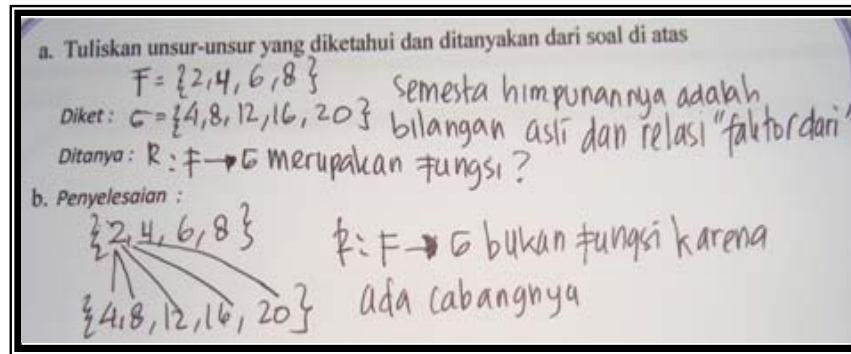 a. Tuliskan unsur-unsur yang diketahui dan ditanyakan dari soal di atas
F = {2,4,6,8}
Diket : G = {4,8,12,16,20}
Semesta himpunannya adalah
bilangan asli dan relasi "faktor dari"
Ditanya : R : F → G merupakan fungsi?
b. Penyelesaian :
{2,4,6,8}
{4,8,12,16,20}
R : F → G bukan fungsi karena
ada cabangnya